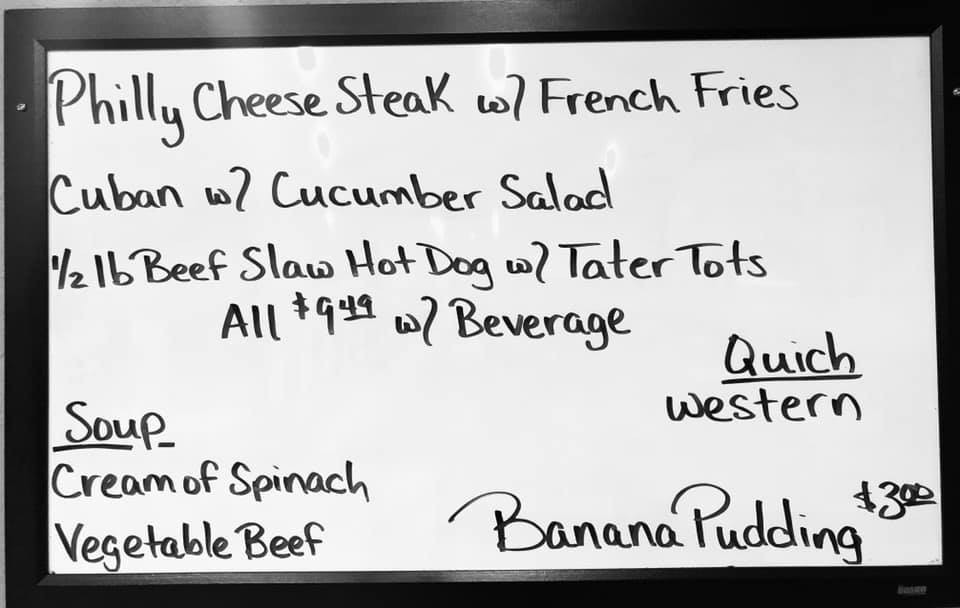 Philly Cheese Steak w/ French Fries
Cuban w/ Cucumber Salad
1/2 lb Beef Slaw Hot Dog w/ Tater Tots
All $9.49 w/ Beverage
Quich
western
Soup
Cream of Spinach
Vegetable Beef
Banana Pudding $3.00